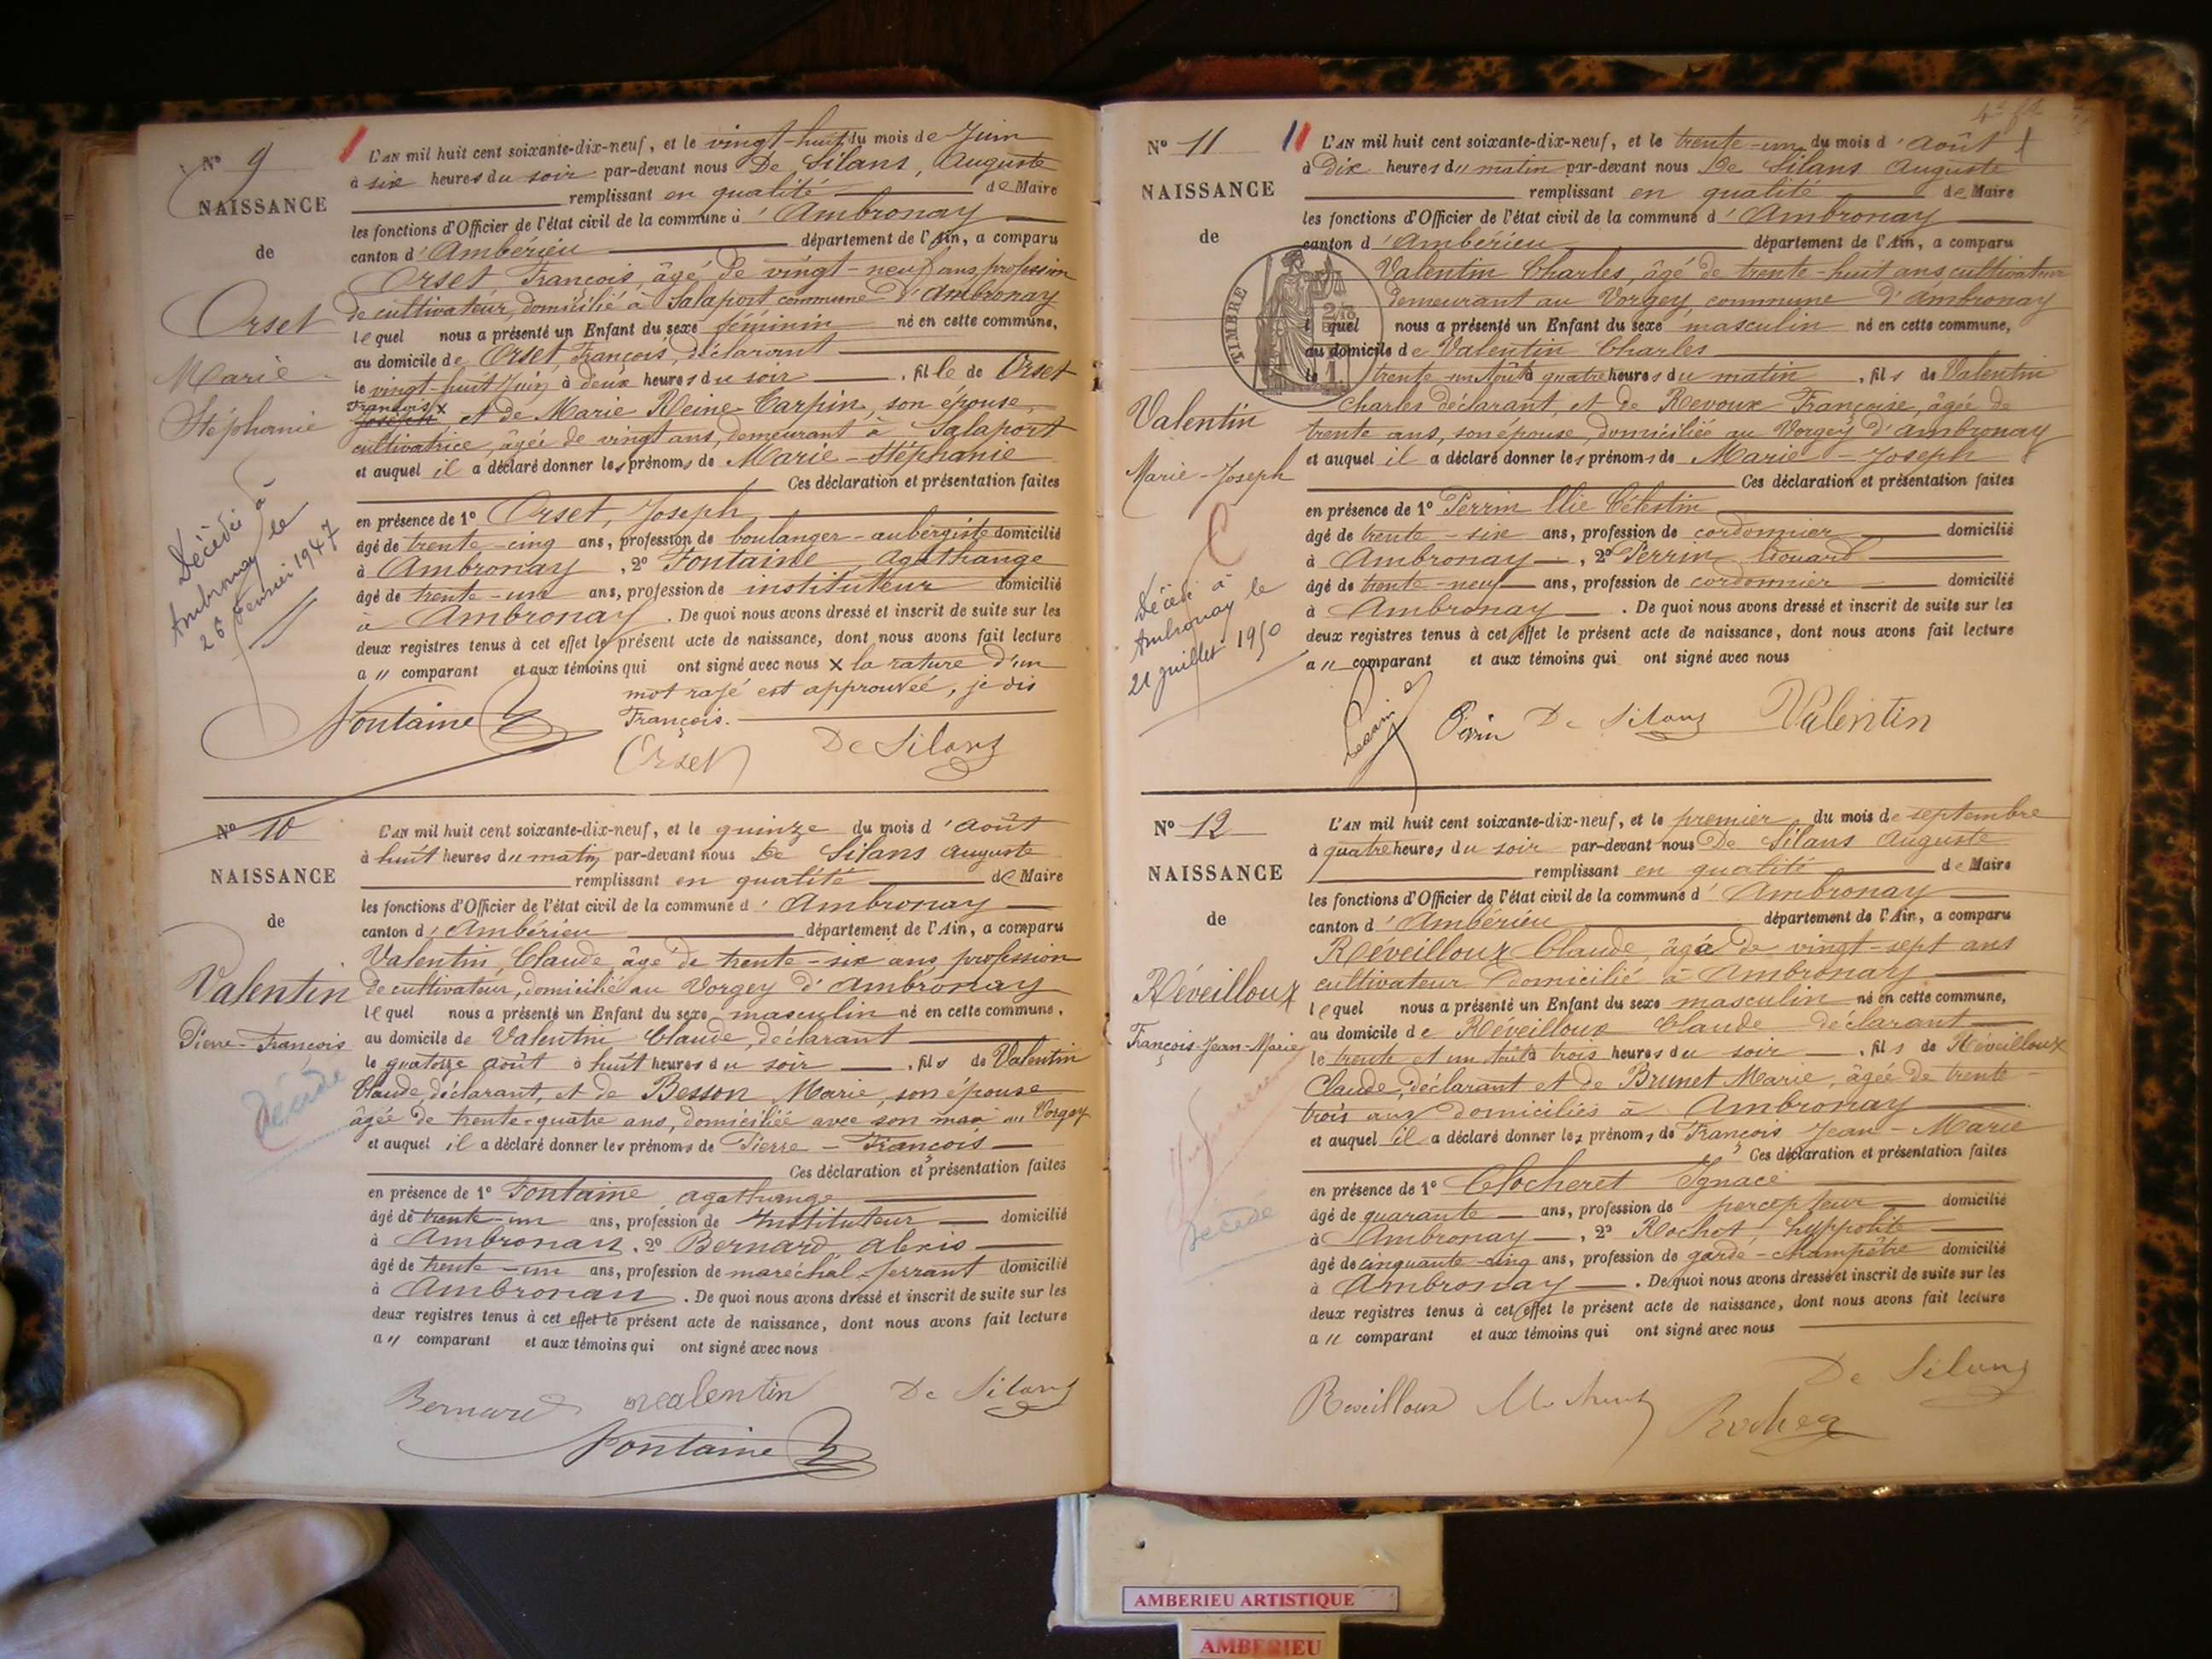 N° 9
NAISSANCE
de
Orset
Marie
Stéphanie
Décédée à
Ambronay le
26 février 1947
L'AN mil huit cent soixante-dix-neuf, et le vingt-huit du mois de Juin
à six heures du soir par-devant nous De Silans, Auguste
remplissant en qualité de Maire
les fonctions d'Officier de l'état civil de la commune d'Ambronay
canton d'Ambérieu département de l'Ain, a comparu
Orset François, âgé de vingt-neuf ans, profession
de cultivateur, domicilié à Salaport commune d'Ambronay
lequel nous a présenté un Enfant du sexe féminin né en cette commune,
au domicile de Orset, François, déclarant
le vingt-huit Juin à deux heures du soir, fille de Orset
François x
Joseph et de Marie Reine Carpin, son épouse,
cultivatrice, âgée de vingt ans, demeurant à Salaport
et auquel il a déclaré donner les prénoms de Marie-Stéphanie
Ces déclaration et présentation faites
en présence de 1° Orset, Joseph,
âgé de trente-cinq ans, profession de boulanger-aubergiste domicilié
à Ambronay, 2° Fontaine, Agathange
âgé de trente-un ans, profession de instituteur domicilié
à Ambronay. De quoi nous avons dressé et inscrit de suite sur les
deux registres tenus à cet effet le présent acte de naissance, dont nous avons fait lecture
a " comparant et aux témoins qui ont signé avec nous x la rature d'un
mot rasé est approuvée, je dis
François.
Fontaine
Orset
De Silans
N° 10
NAISSANCE
de
Valentin
Pierre-François
Décédé
L'AN mil huit cent soixante-dix-neuf, et le quinze du mois d'Août
à huit heures du matin par-devant nous De Silans Auguste
remplissant en qualité de Maire
les fonctions d'Officier de l'état civil de la commune d'Ambronay
canton d'Ambérieu département de l'Ain, a comparu
Valentin, Claude, âgé de trente-six ans, profession
de cultivateur, domicilié au Vorgey d'Ambronay
lequel nous a présenté un Enfant du sexe masculin né en cette commune,
au domicile de Valentin Claude, déclarant
le quatorze Août à huit heures du soir, fils de Valentin
Claude, déclarant, et de Besson Marie, son épouse
âgée de trente-quatre ans, domiciliée avec son mari au Vorgey
et auquel il a déclaré donner les prénoms de Pierre-François
Ces déclaration et présentation faites
en présence de 1° Fontaine agathange
âgé de trente-un ans, profession de Instituteur domicilié
à Ambronay, 2° Bernard, Alexis
âgé de trente-un ans, profession de maréchal-ferrant domicilié
à Ambronay. De quoi nous avons dressé et inscrit de suite sur les
deux registres tenus à cet effet le présent acte de naissance, dont nous avons fait lecture
a " comparant et aux témoins qui ont signé avec nous
Bernard Valentin De Silans
Fontaine
N° 11
NAISSANCE
de
Valentin
Marie-Joseph
Décédé à
Ambronay le
21 juillet 1950
TIMBRE
L'AN mil huit cent soixante-dix-neuf, et le trente-un du mois d'Août
à Dix heures du matin par-devant nous De Silans Auguste
remplissant en qualité de Maire
les fonctions d'Officier de l'état civil de la commune d'Ambronay
canton d'Ambérieu département de l'Ain, a comparu
Valentin Charles, âgé de trente-huit ans, cultivateur
demeurant au Vorgey commune d'Ambronay
lequel nous a présenté un Enfant du sexe masculin né en cette commune,
au domicile de Valentin Charles
le trente-un Août à quatre heures du matin, fils de Valentin
Charles déclarant, et de Revoux Françoise, âgée de
trente ans, son épouse, domiciliée au Vorgey d'Ambronay
et auquel il a déclaré donner les prénoms de Marie-Joseph
Ces déclaration et présentation faites
en présence de 1° Perrin Elie Célestin
âgé de trente-six ans, profession de cordonnier domicilié
à Ambronay, 2° Perrin Edouard
âgé de trente-neuf ans, profession de cordonnier domicilié
à Ambronay. De quoi nous avons dressé et inscrit de suite sur les
deux registres tenus à cet effet le présent acte de naissance, dont nous avons fait lecture
a " comparant et aux témoins qui ont signé avec nous
Perrin De Silans Valentin
N° 12
NAISSANCE
de
Réveilloux
François-Jean-Marie
Décédé
L'AN mil huit cent soixante-dix-neuf, et le premier du mois de septembre
à quatre heures du soir par-devant nous De Silans Auguste
remplissant en qualité de Maire
les fonctions d'Officier de l'état civil de la commune d'Ambronay
canton d'Ambérieu département de l'Ain, a comparu
Réveilloux Claude, âgé de vingt-sept ans
cultivateur domicilié à Ambronay
lequel nous a présenté un Enfant du sexe masculin né en cette commune,
au domicile de Réveilloux Claude déclarant
le trente et un Août à trois heures du soir, fils de Réveilloux
Claude, déclarant et de Brunet Marie, âgée de trente-
trois ans domiciliés à Ambronay
et auquel il a déclaré donner les prénoms de François Jean-Marie
Ces déclaration et présentation faites
en présence de 1° Clocheret Ignace
âgé de quarante ans, profession de percepteur domicilié
à Ambronay, 2° Rochet, hyppolite
âgé de cinquante-cinq ans, profession de garde-champêtre domicilié
à Ambronay. De quoi nous avons dressé et inscrit de suite sur les
deux registres tenus à cet effet le présent acte de naissance, dont nous avons fait lecture
a " comparant et aux témoins qui ont signé avec nous
De Silans
Reveilloux Rochet
AMBERIEU ARTISTIQUE
AMBERIEU